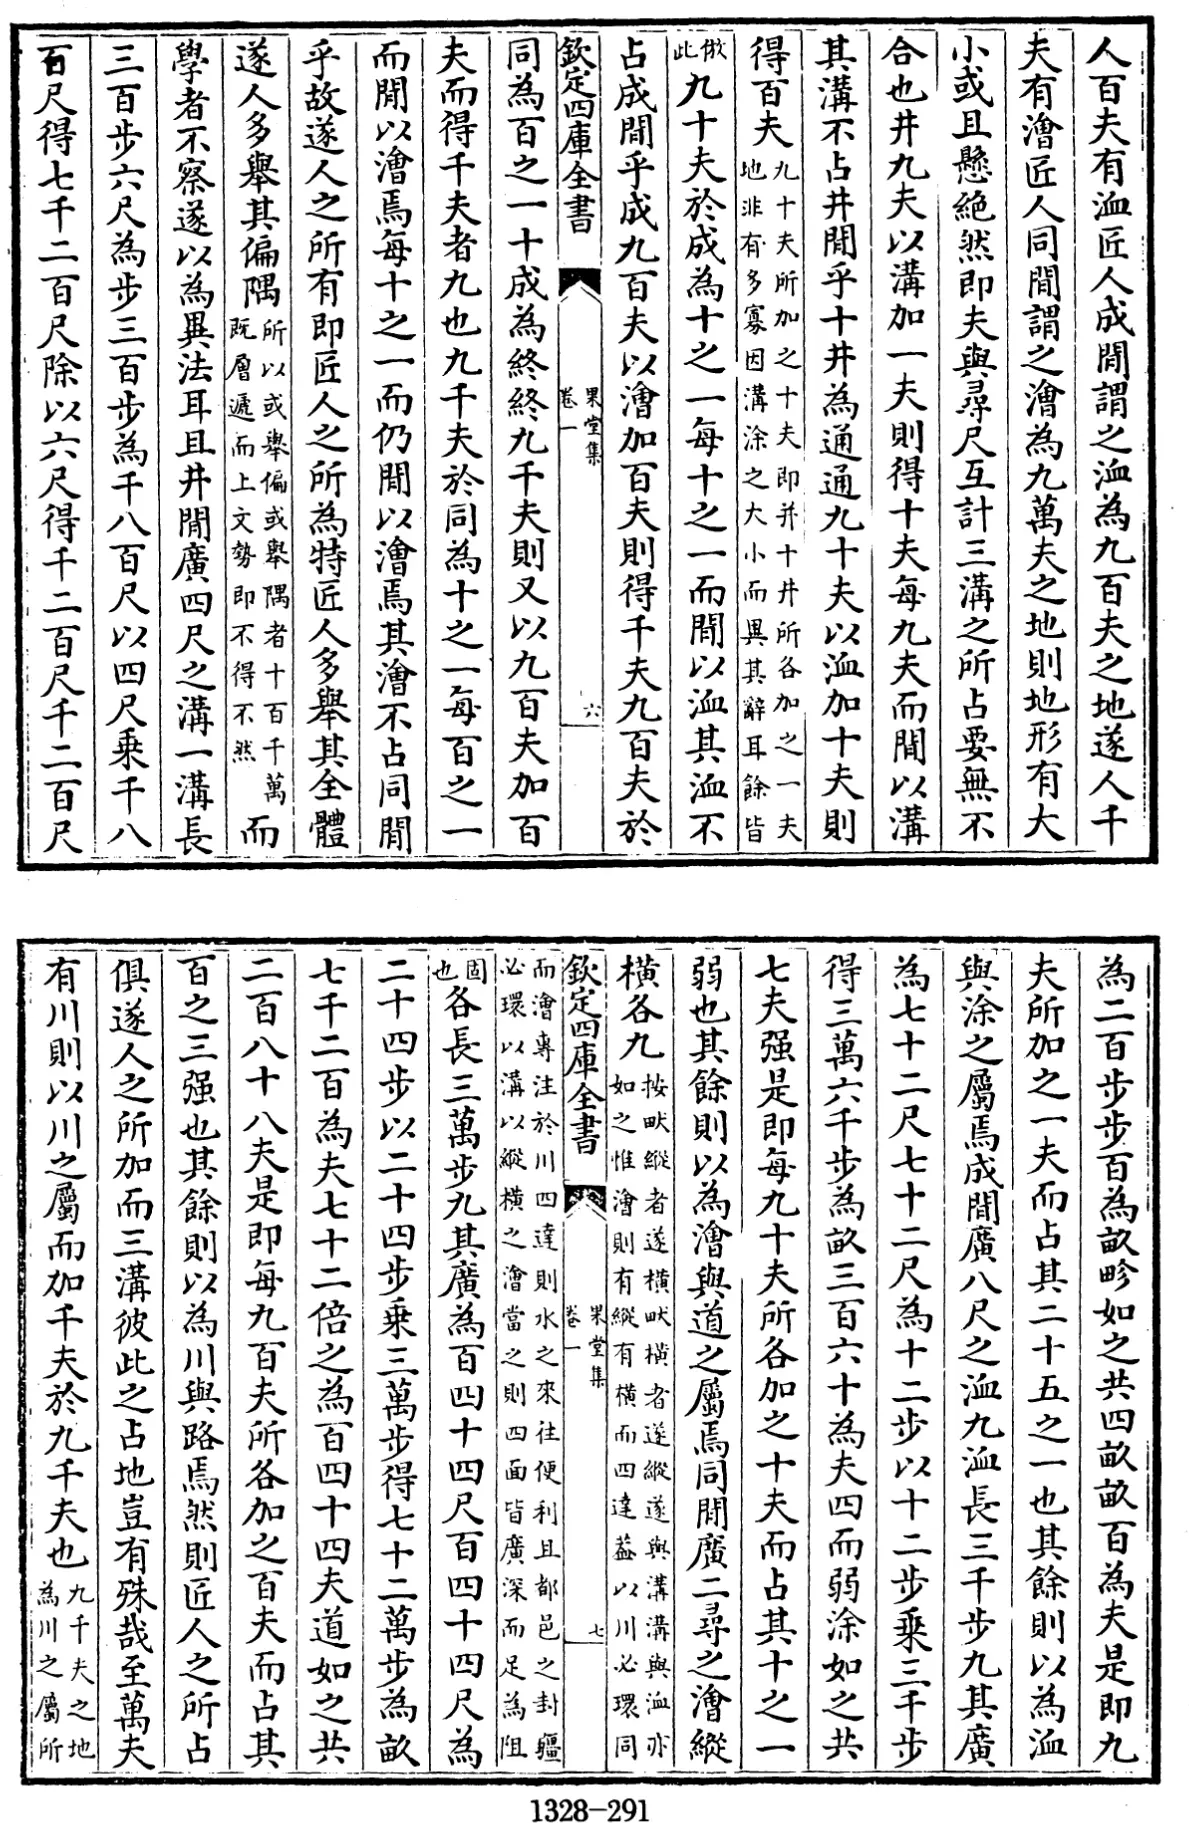 人百夫有洫匠人成閒謂之洫為九百夫之地遂人千
夫有澮匠人同閒謂之澮為九萬夫之地則地形有大
小或且懸絶然即夫與尋尺互計三溝之所占要無不
合也井九夫以溝加一夫則得十夫每九夫而閒以溝
其溝不占井閒乎十井為通通九十夫以洫加十夫則
得百夫九十夫所加之十夫即并十井所各加之一夫
地非有多寡因溝涂之大小而異其辭耳餘皆
倣此九十夫於成為十之一每十之一而閒以洫其洫不
占成閒乎成九百夫以澮加百夫則得千夫九百夫於
欽定四庫全書
果堂集
卷一
六
同為百之一十成為終終九千夫則又以九百夫加百
夫而得千夫者九也九千夫於同為十之一每百之一
而閒以澮焉每十之一而仍閒以澮焉其澮不占同閒
乎故遂人之所有即匠人之所為特匠人多舉其全體
遂人多舉其偏隅所以或舉偏或舉隅者十百千萬
既層遞而上文勢即不得不然而
學者不察遂以為異法耳且井閒廣四尺之溝一溝長
三百步六尺為步三百步為千八百尺以四尺乘千八
百尺得七千二百尺除以六尺得千二百尺千二百尺
為二百步步百為畝畛如之共四畝畝百為夫是即九
夫所加之一夫而占其二十五之一也其餘則以為洫
與涂之屬焉成閒廣八尺之洫九洫長三千步九其廣
為七十二尺七十二尺為十二步以十二步乘三千步
得三萬六千步為畝三百六十為夫四而弱涂如之共
七夫强是即每九十夫所各加之十夫而占其十之一
弱也其餘則以為澮與道之屬焉同閒廣二尋之澮縱
橫各九按畎縱者遂橫畎橫者遂縱遂與溝溝與洫亦
如之惟澮則有縱有橫而四達蓋以川必環同
欽定四庫全書
果堂集
卷一
七
而澮專注於川四達則水之來往便利且都邑之封疆
必環以溝以縱橫之澮當之則四面皆廣深而足為阻
固也各長三萬步九其廣為百四十四尺百四十四尺為
二十四步以二十四步乘三萬步得七十二萬步為畝
七千二百為夫七十二倍之為百四十四夫道如之共
二百八十八夫是即每九百夫所各加之百夫而占其
百之三强也其餘則以為川與路焉然則匠人之所占
俱遂人之所加而三溝彼此之占地豈有殊哉至萬夫
有川則以川之屬而加千夫於九千夫也九千夫之地
為川之屬所
1328-291